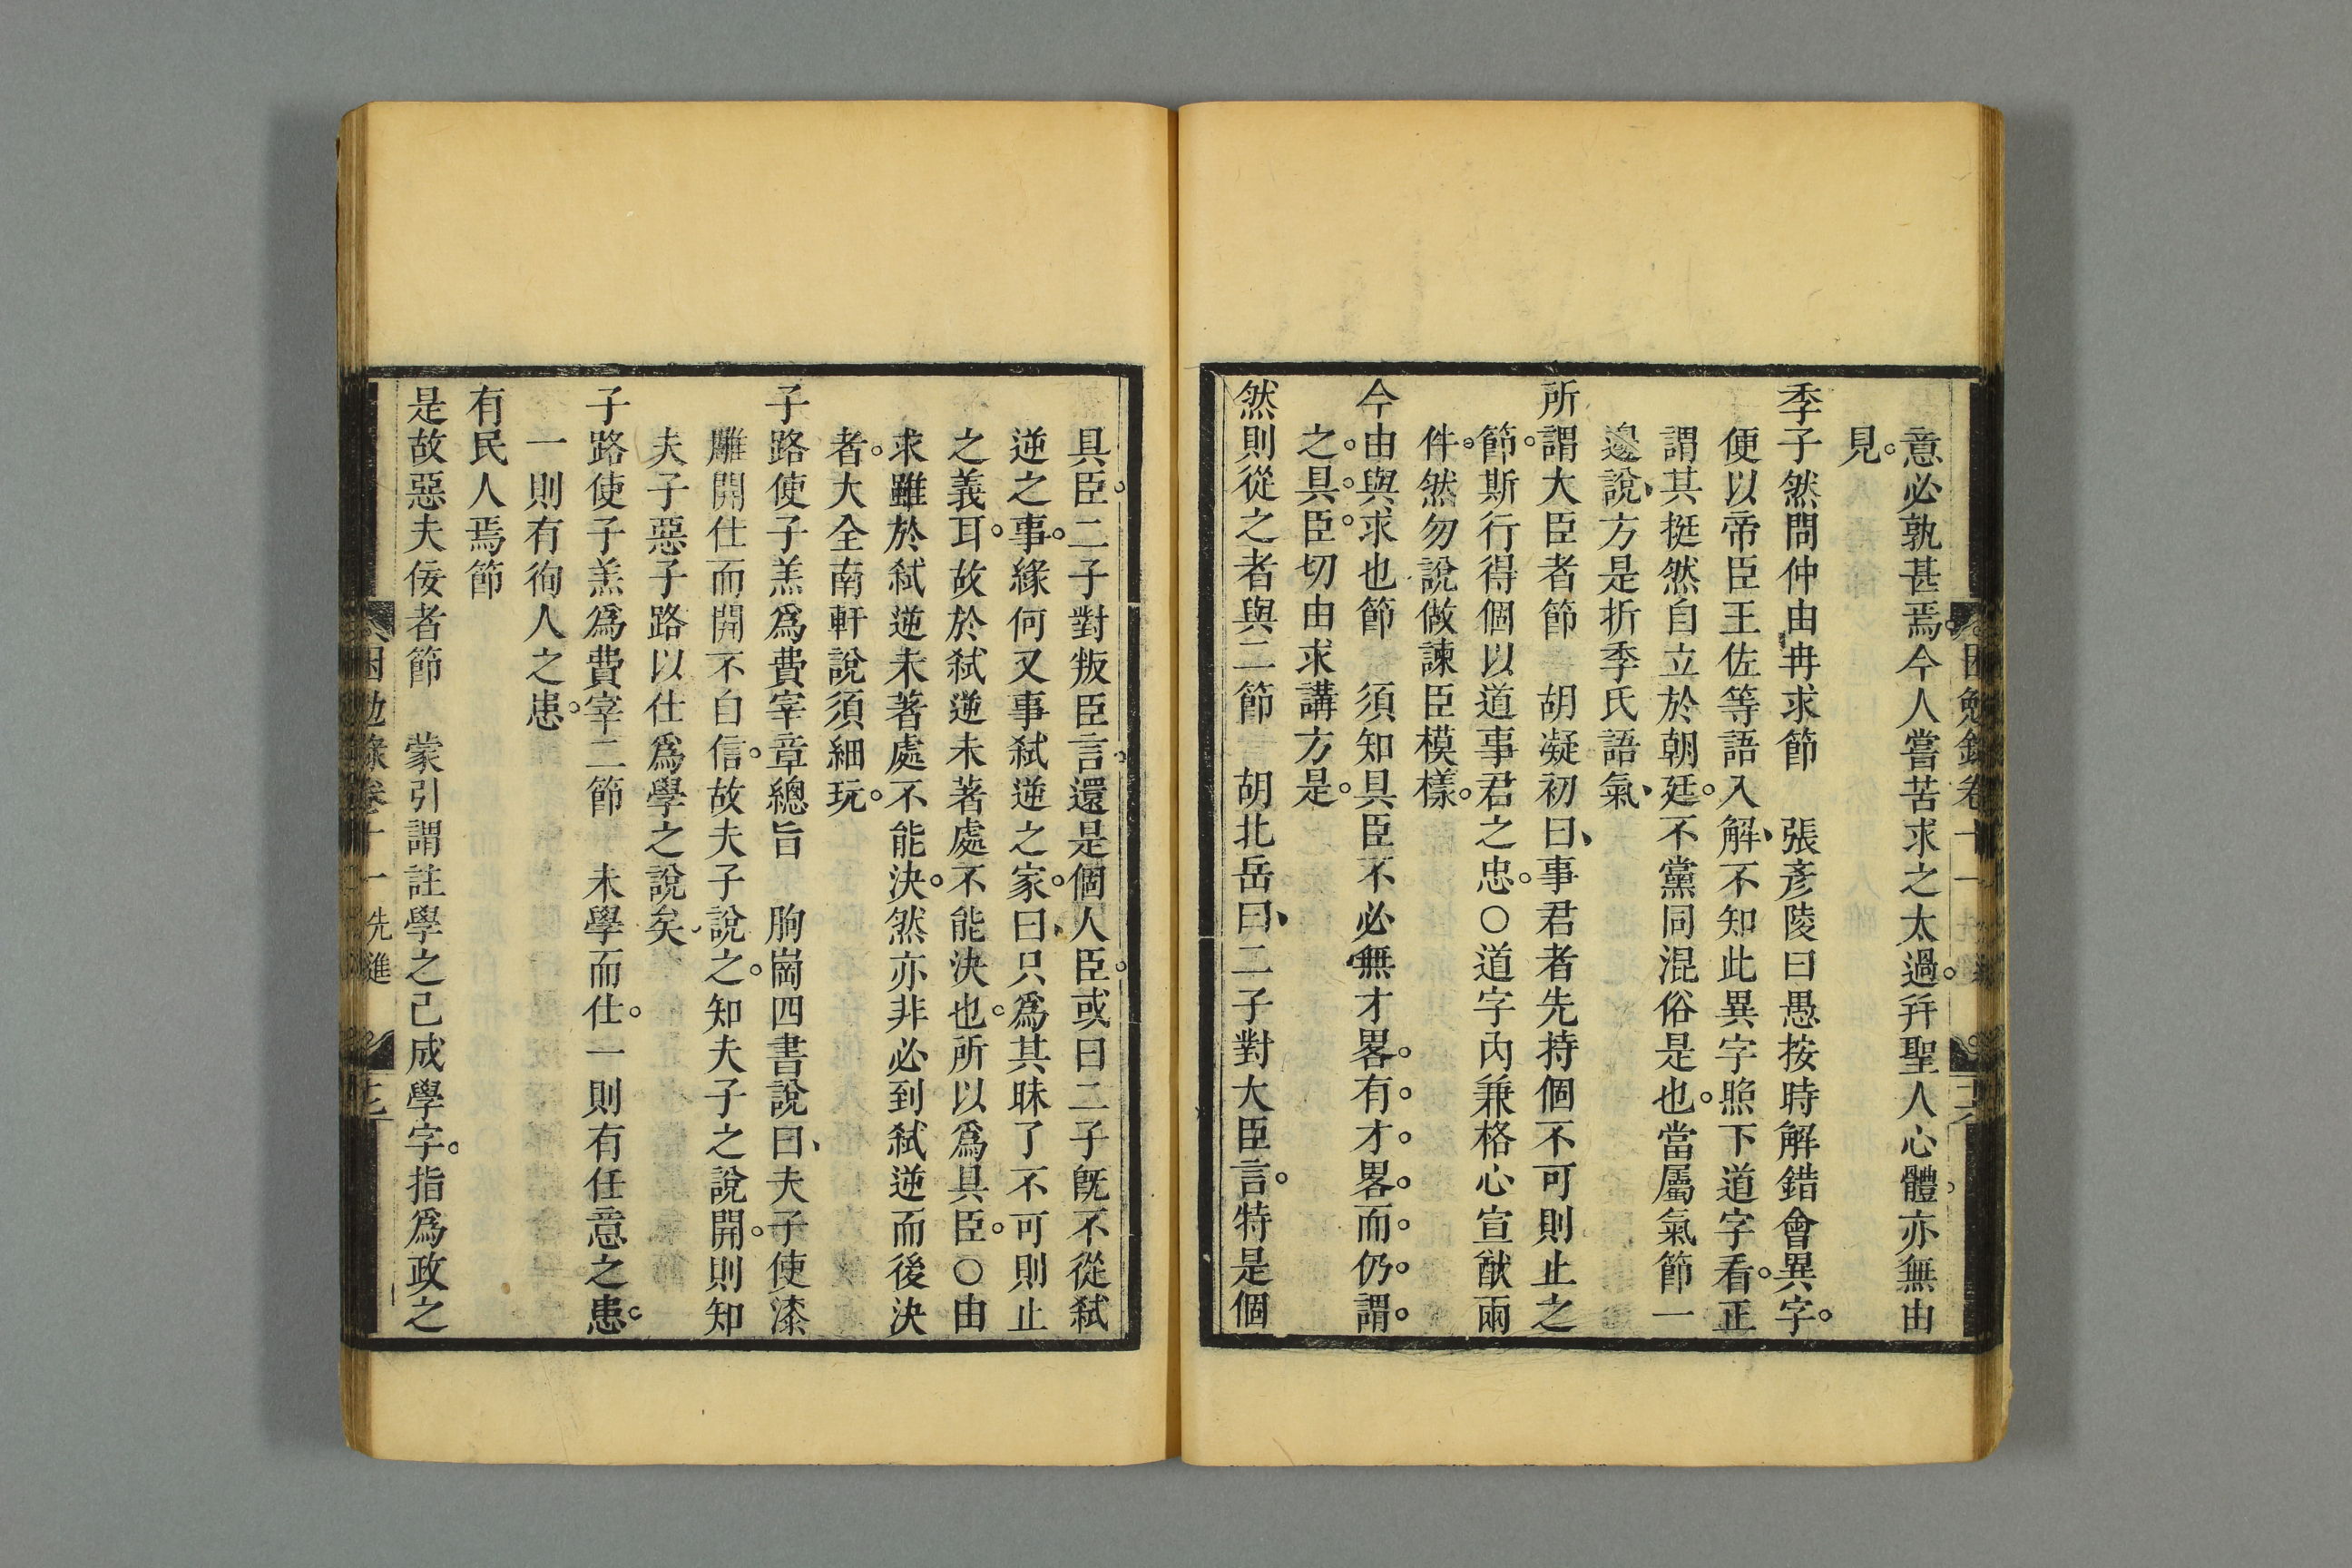 意必孰甚焉。今人嘗苦求之太過。幷聖人心體。亦無由
見。
季子然問仲由冉求節　張彥陵曰愚按時解錯會異字。
便以帝臣王佐等語入解、不知此異字照下道字看。正
謂其挺然自立於朝廷。不黨同混俗是也。當屬氣節一
邊說、方是折季氏語氣、
所謂大臣者節　胡凝初曰、事君者先持個不可則止之
節。斯行得個以道事君之忠。○道字內兼格心宣猷兩
件。然勿說做諫臣模樣。
今由與求也節　須知具臣不必無才畧。有才畧而仍謂。
之具臣。切由求講方是。
然則從之者與二節　胡北岳曰、二子對大臣言。特是個
具臣。二子對叛臣言。還是個人臣。或曰二子旣不從弒
逆之事。緣何又事弒逆之家。曰、只爲其昧了不可則止
之義耳。故於弒逆未著處不能決也。所以爲具臣。○由
求雖於弒逆未著處不能決。然亦非必到弒逆而後決
者。大全南軒說須細玩。
子路使子羔爲費宰章總旨　胊崗四書說曰、夫子使漆
雕開仕而開不自信。故夫子說之。知夫子之說開。則知
夫子惡子路以仕爲學之說矣
子路使子羔爲費宰二節　未學而仕。一則有任意之患。
一則有徇人之患。
有民人焉節
是故惡夫佞者節　蒙引謂註學之己成學字。指爲政之
困勉錄卷十一　先進